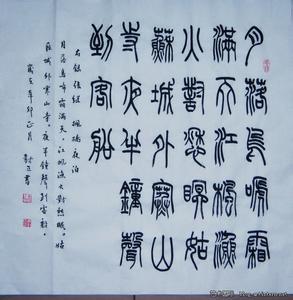 月落烏啼霜
滿天江楓漁
火對愁眠姑
蘇城外寒山
寺夜半鐘聲
到客船
右錄張繼 楓橋夜泊
月落烏啼霜滿天。江楓漁火對愁眠。姑
蘇城外寒山寺。夜半鐘聲到客船。
歲在辛卯正月
blog.artintern.net